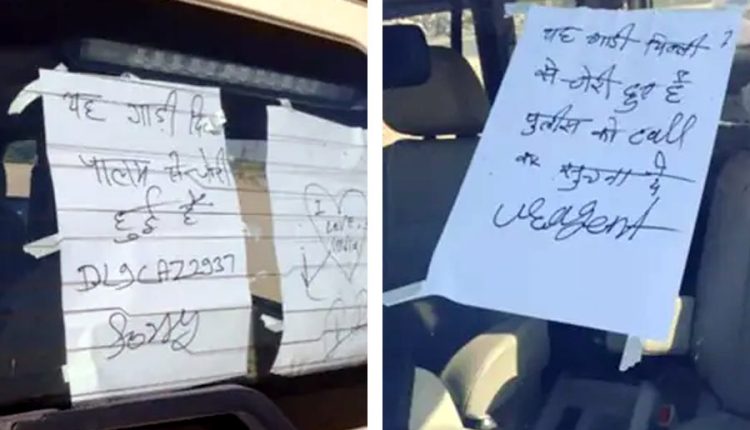 यह गाड़ी दिल्ली
पालम से चोरी
हुई है
DL9CAZ2937
Sorry
I
LOVE
India
यह गाडी दिल्ली
से चोरी हुइ है
पुलीस को call
कर सुचना दे
URAgENt